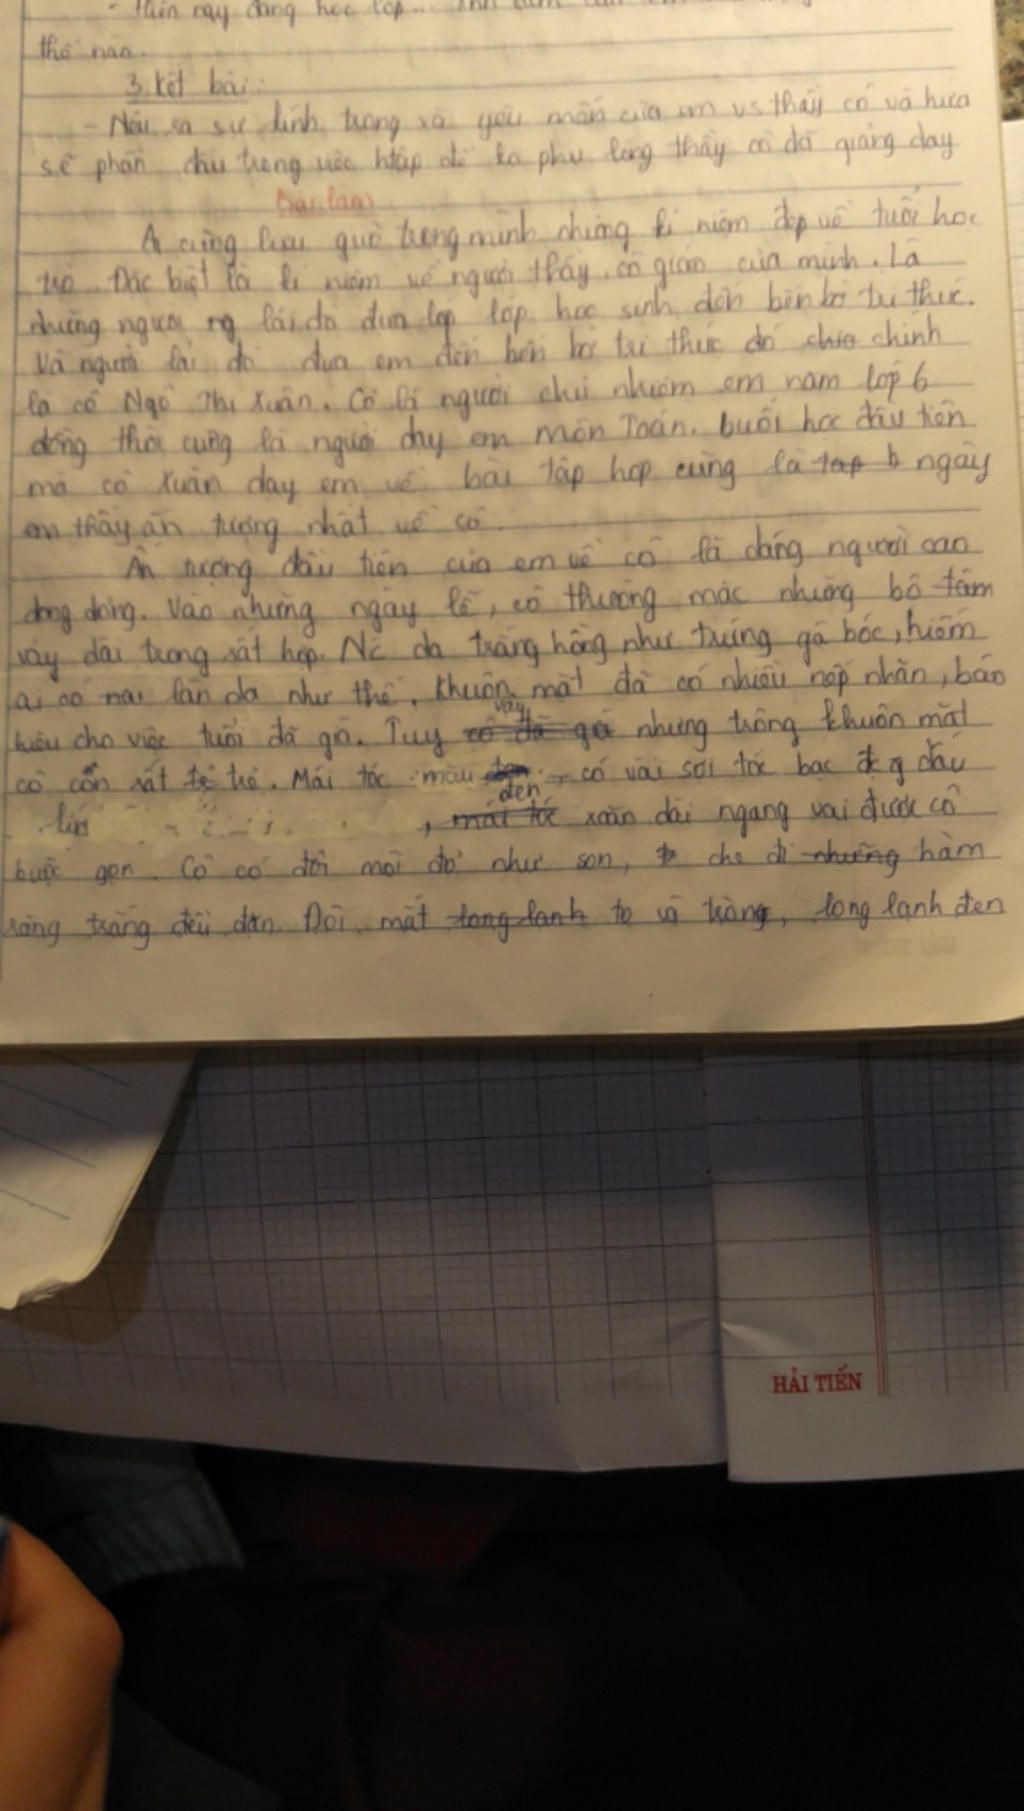 - Hiện nay đang học lớp...
thế nào.
3. Kết bài:
- Nêu ra sự kính trọng và yêu mến của em vs thầy cô và hứa
sẽ phấn đấu trong việc htập để ko phụ lòng thầy cô đã giảng dạy
Bài làm
Ai cũng lưu giữ trong mình những kỉ niệm đẹp về tuổi học
trò. Đặc biệt là kỉ niệm về người thầy, cô giáo của mình. Là
những người ng lái đò đưa lớp lớp học sinh đến bến bờ tri thức.
Và người lái đò đưa em đến bến bờ tri thức đó chính
là cô Ngô Thị Xuân. Cô là người chủ nhiệm em năm lớp 6
đồng thời cũng là người dạy em môn Toán. buổi học đầu tiên
mà cô Xuân dạy em về bài tập hợp cũng là ngày
em thấy ấn tượng nhất về cô.
Ấn tượng đầu tiên của em về cô là dáng người cao
dong dỏng. Vào những ngày lễ, cô thường mặc những bộ tấm
váy dài trông rất hợp. Nc da trắng hồng như trứng gà bóc, hiếm
ai có nai làn da như thế. Khuôn mặt đã có nhiều nếp nhăn, báo
hiệu cho việc tuổi đã già. Tuy vậy nhưng trông khuôn mặt
cô còn rất trẻ. Mái tóc màu đen, có vài sợi tóc bạc đầu
, xoăn dài ngang vai được cô
buộc gọn. Cô có đôi môi đỏ như son, che đi hàm
răng trắng đều đặn. Đôi mắt to và tròn, long lanh đen
HẢI TIẾN